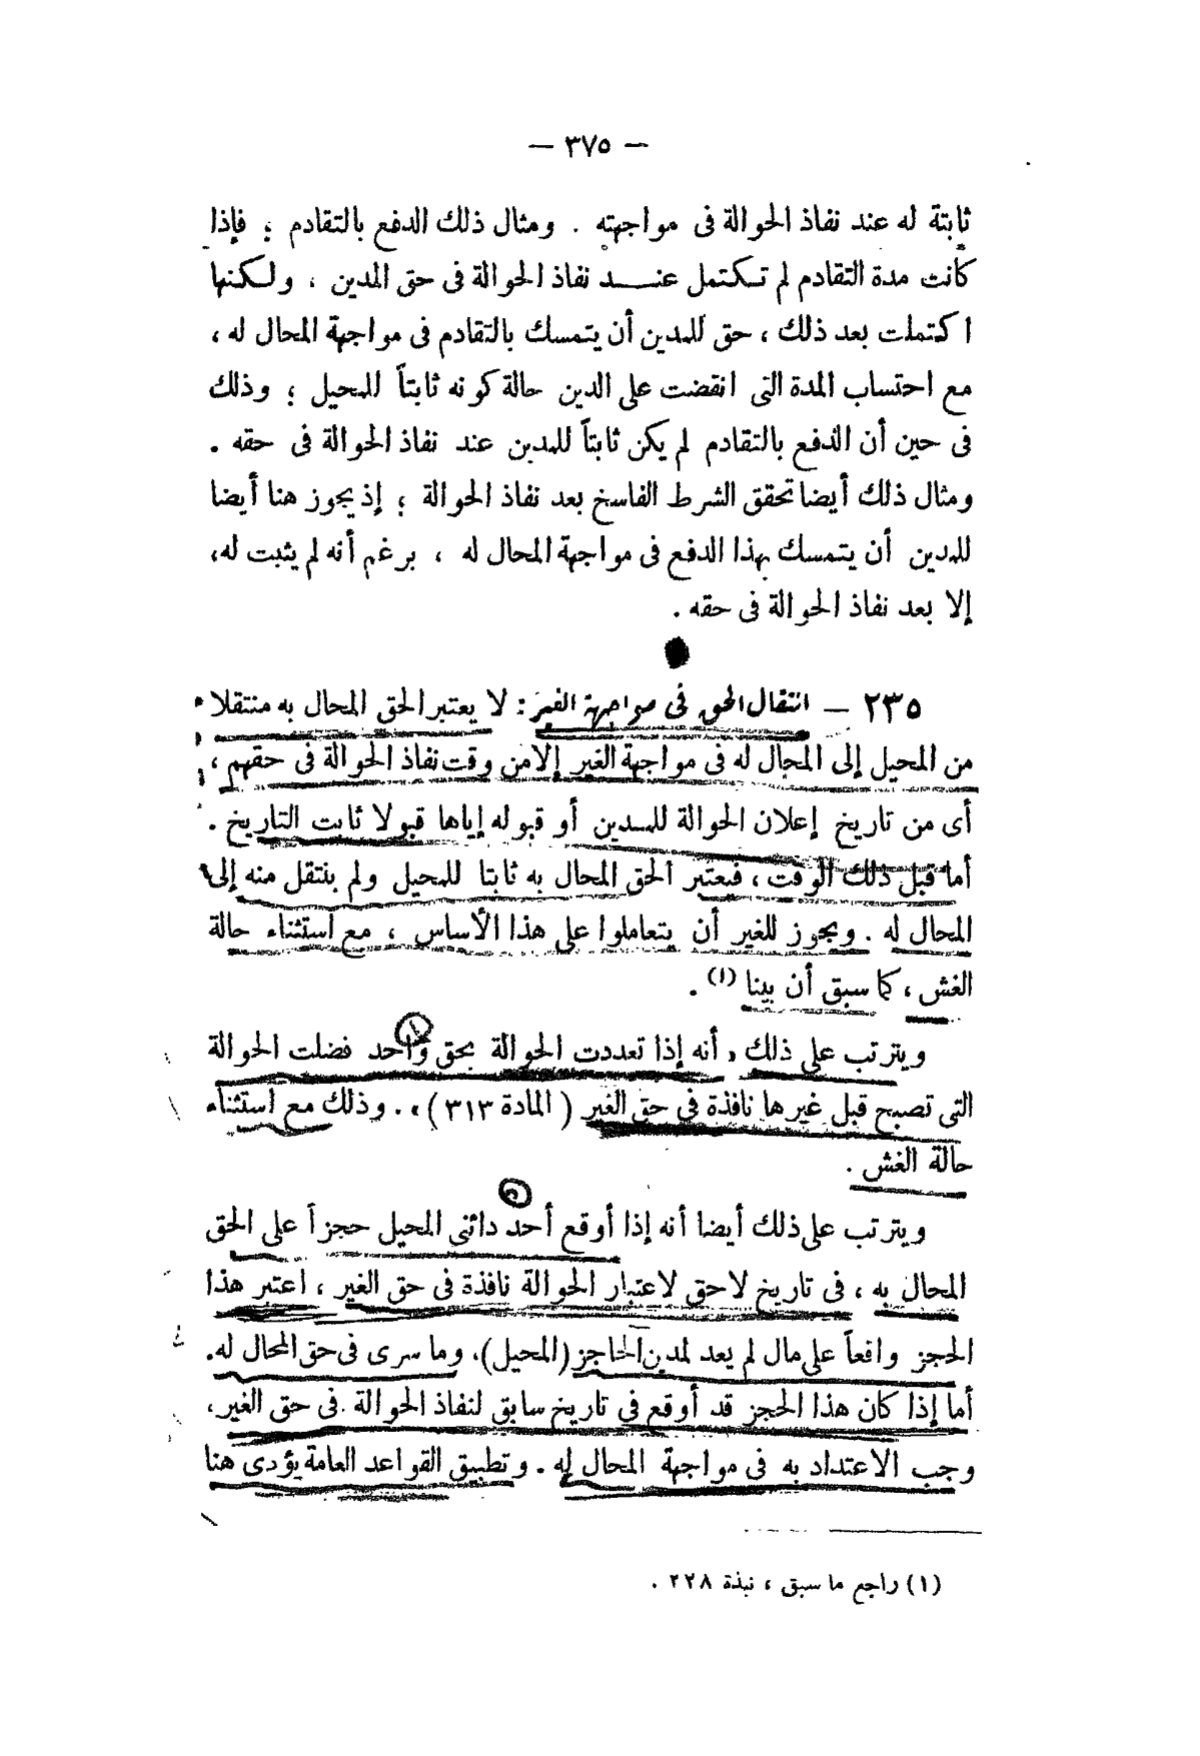 — ٣٧٥ —
ثابتة له عند نفاذ الحوالة فى مواجهته . ومثال ذلك الدفع بالتقادم ؛ فإذا
كانت مدة التقادم لم تكتمل عنـــد نفاذ الحوالة فى حق المدين ، ولكنها
اكتملت بعد ذلك ، حق للمدين أن يتمسك بالتقادم فى مواجهة المحال له ،
مع احتساب المدة التى انقضت على الدين حالة كونه ثابتاً للمحيل ؛ وذلك
فى حين أن الدفع بالتقادم لم يكن ثابتاً للمدين عند نفاذ الحوالة فى حقه .
ومثال ذلك أيضا تحقق الشرط الفاسخ بعد نفاذ الحوالة ؛ إذ يجوز هنا أيضا
للمدين أن يتمسك بهذا الدفع فى مواجهة المحال له ، برغم أنه لم يثبت له،
إلا بعد نفاذ الحوالة فى حقه .
٢٣٥ — انتقال الحق فى مواجهة الغير : لا يعتبر الحق المحال به منتقلا
من المحيل إلى المحال له فى مواجهة الغير إلا من وقت نفاذ الحوالة فى حقهم ،
أى من تاريخ إعلان الحوالة للمدين أو قبوله إياها قبولا ثابت التاريخ .
أما قبل ذلك الوقت ، فيعتبر الحق المحال به ثابتا للمحيل ولم ينتقل منه إلى
المحال له . ويجوز للغير أن يتعاملوا على هذا الأساس ، مع استثناء حالة
الغش ، كما سبق أن بينا (١) .
ويترتب على ذلك ، أنه إذا تعددت الحوالة بحق واحد فضلت الحوالة
التى تصبح قبل غيرها نافذة فى حق الغير ( المادة ٣١٣ ) ، . وذلك مع استثناء
حالة الغش .
ويترتب على ذلك أيضا أنه إذا أوقع أحد دائنى المحيل حجزاً على الحق
المحال به ، فى تاريخ لاحق لاعتبار الحوالة نافذة فى حق الغير ، اعتبر هذا
الحجز واقعاً على مال لم يعد لمدين الحاجز (المحيل)، وما سرى فى حق المحال له.
أما إذا كان هذا الحجز قد أوقع فى تاريخ سابق لنفاذ الحوالة فى حق الغير،
وجب الاعتداد به فى مواجهة المحال له . وتطبيق القواعد العامة يؤدى هنا
(١) راجع ما سبق ، نبذة ٢٢٨ .